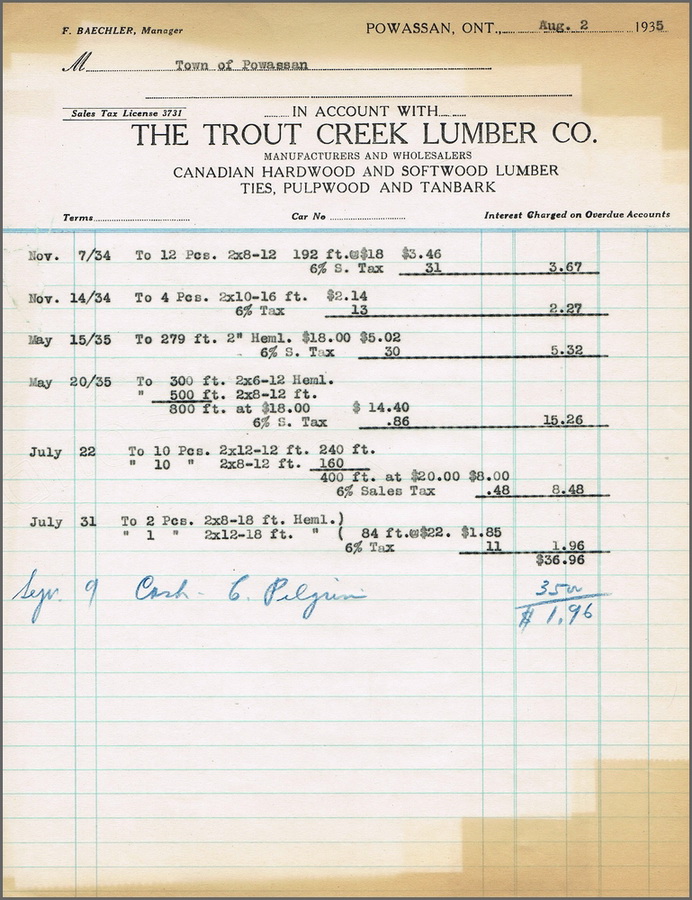 F. BAECHLER, Manager
POWASSAN, ONT., Aug. 2 1935
M Town of Powassan
Sales Tax License 3731
IN ACCOUNT WITH
THE TROUT CREEK LUMBER CO.
MANUFACTURERS AND WHOLESALERS
CANADIAN HARDWOOD AND SOFTWOOD LUMBER
TIES, PULPWOOD AND TANBARK
Terms Car No Interest Charged on Overdue Accounts
Nov. 7/34 To 12 Pcs. 2x8-12 192 ft.@$18 $3.46
6% S. Tax 31 3.67
Nov. 14/34 To 4 Pcs. 2x10-16 ft. $2.14
6% Tax 13 2.27
May 15/35 To 279 ft. 2" Heml. $18.00 $5.02
6% S. Tax 30 5.32
May 20/35 To 300 ft. 2x6-12 Heml.
" 500 ft. 2x8-12 ft.
800 ft. at $18.00 $ 14.40
6% S. Tax .86 15.26
July 22 To 10 Pcs. 2x12-12 ft. 240 ft.
" 10 " 2x8-12 ft. 160
400 ft. at $20.00 $8.00
6% Sales Tax .48 8.48
July 31 To 2 Pcs. 2x8-18 ft. Heml.)
" 1 " 2x12-18 ft. " ( 84 ft.@$22. $1.85
6% Tax 11 1.96
$36.96
Sep. 9 Cash - C. Pilgrim 35 00
$ 1.96